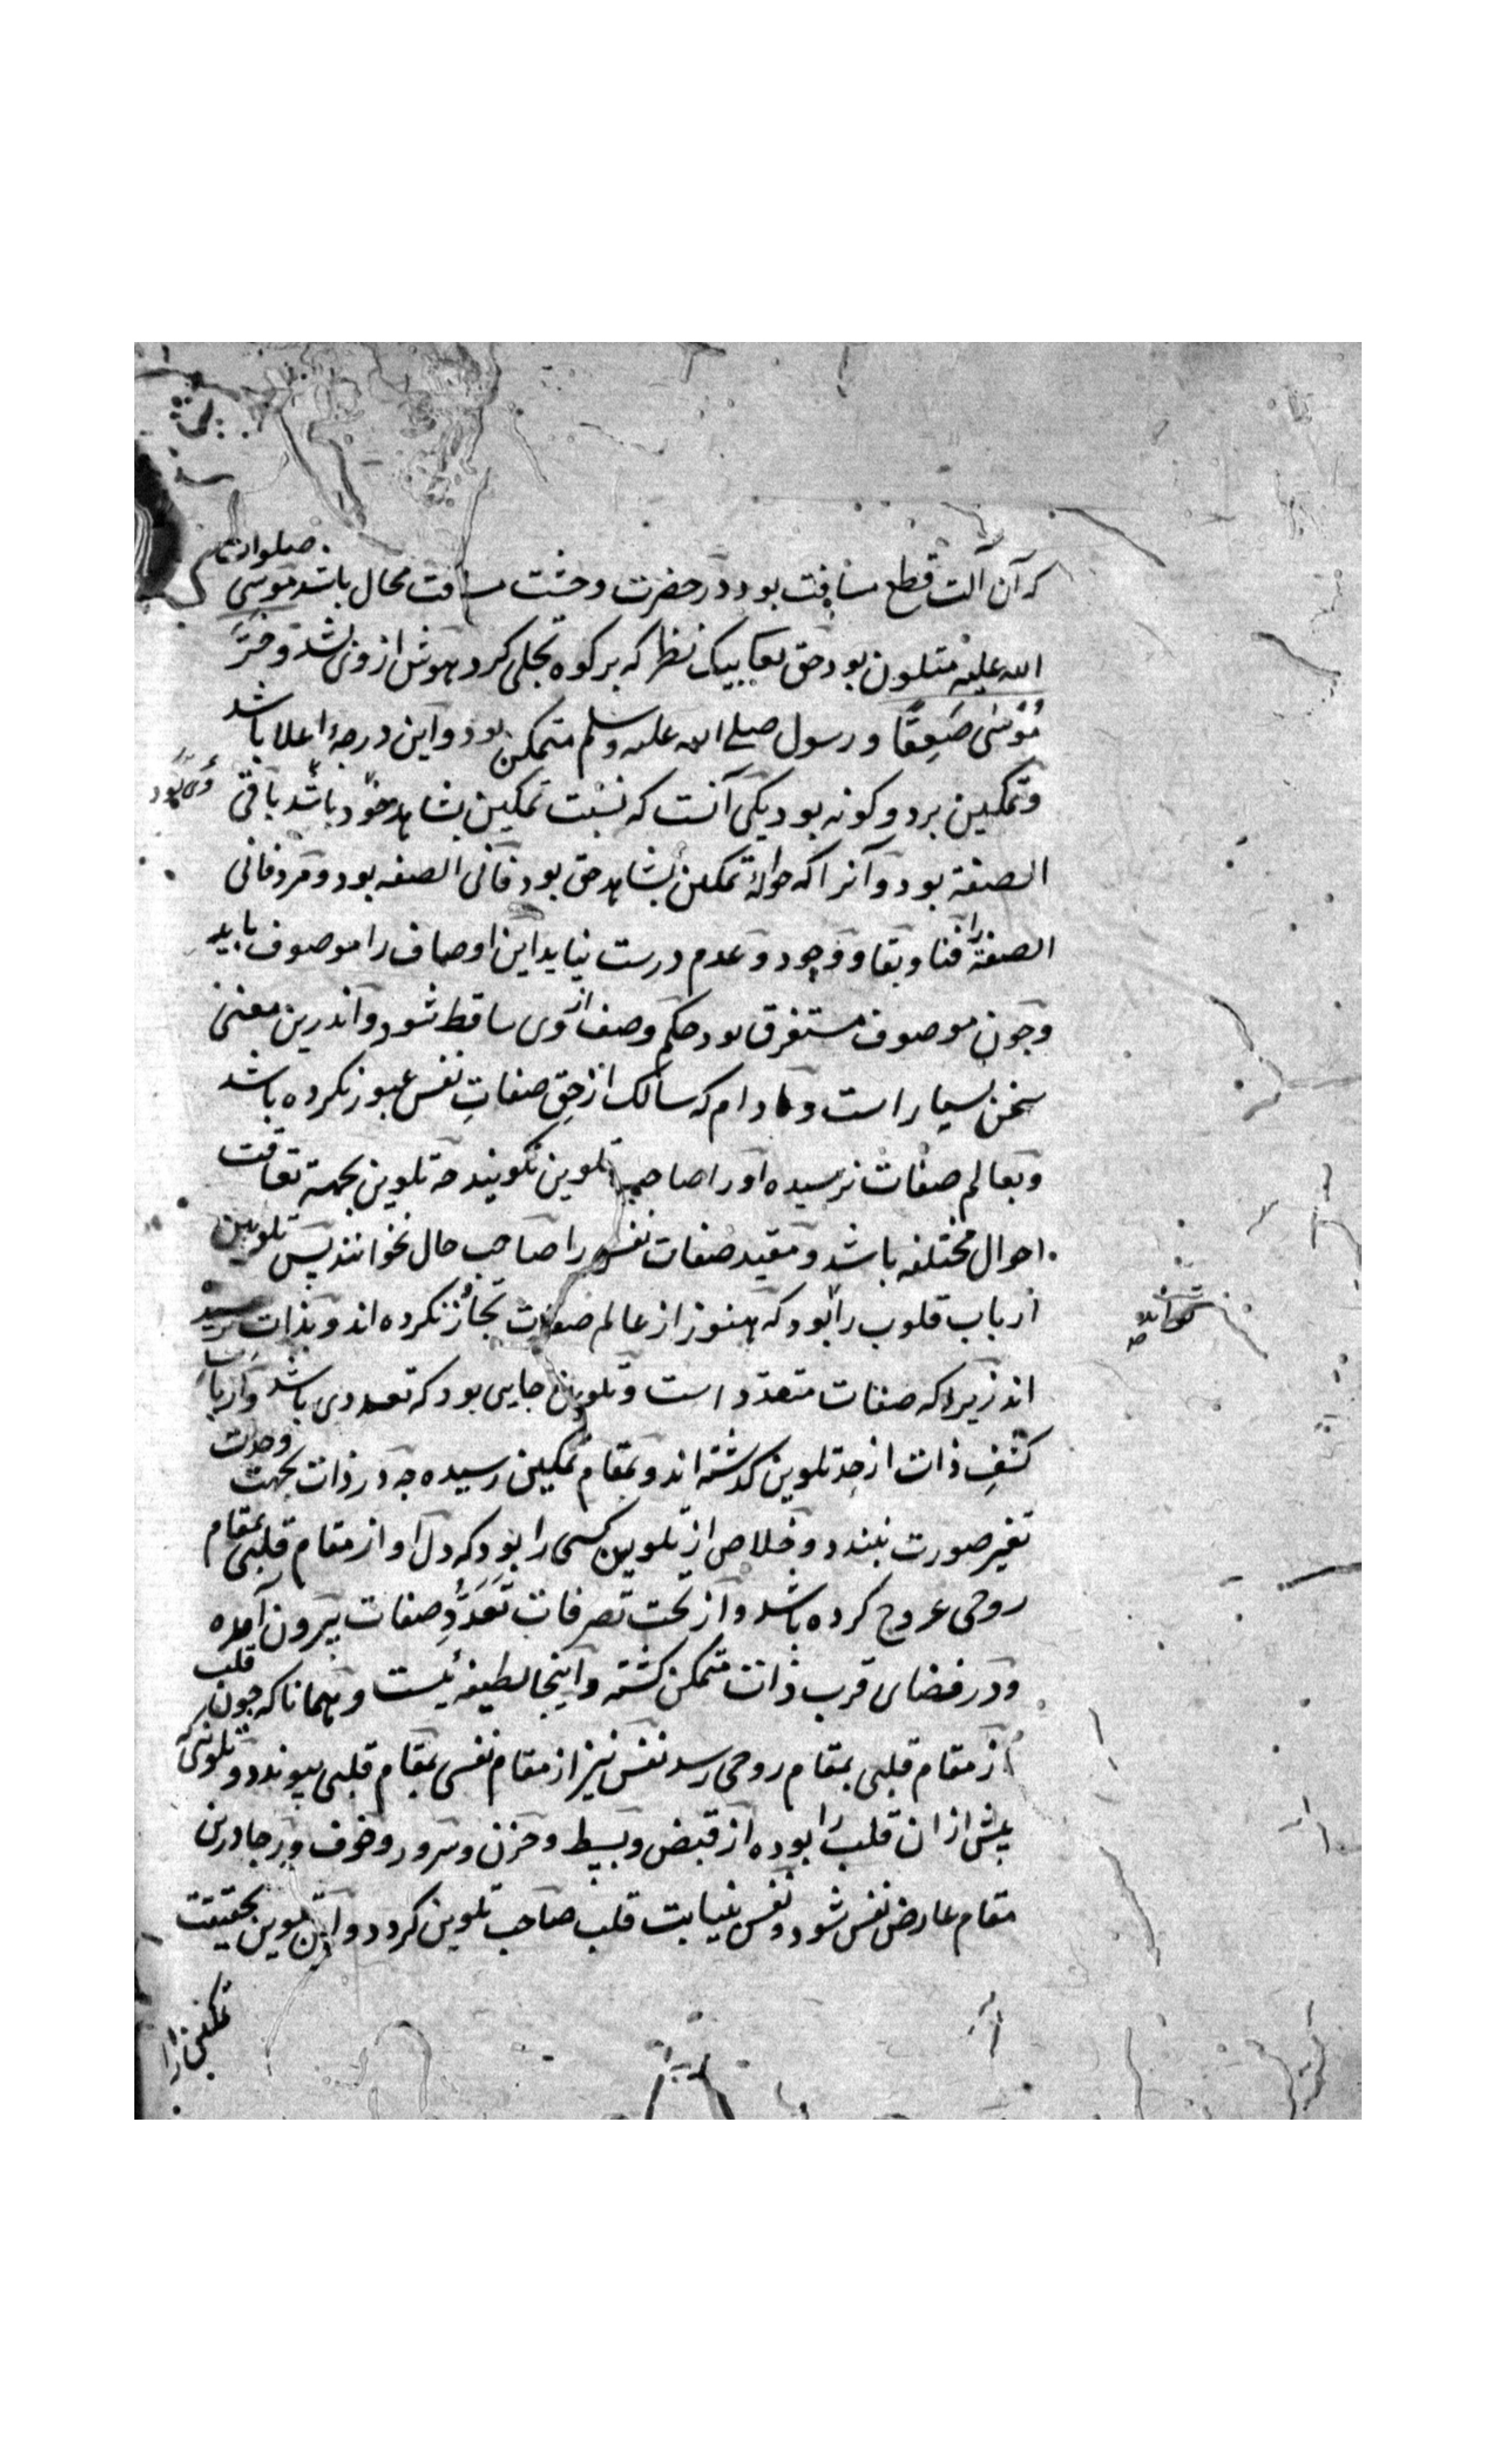 که آن آلت قطع مسافت بود و در حضرت وحشت مسافت محال باشد موسی صلوات
الله علیه متلون بود حق تعا بیک نظر که بر کوه تجلی کرد هوش از وی بشد و خَرَّ
مُوْسٰی صَعِقًا و رسول صلے الله علیه وسلم متمکن بود و این درجۀ اعلا باشد
و تمکین بر دو کونه بود یکی آنست که نسبت تمکین بشاهد خود باشد باقی
الصفة بود و آنرا که حوالۀ تمکین بشاهد حق بود فانی الصفه بود و مرد فانی
الصفة را فنا و بقا و وجود و عدم درست نیاید این اوصاف را موصوف باید
و چون موصوف مستغرق بود حکم وصف از وی ساقط شود و اندرین معنی
سخن بسیار است و مادام که سالک از حق صفاتِ نفس عبور نکرده باشد
و بعالم صفات نرسیده او را صاحب تلوین نکویند چه تلوین بجهة تعاقب
احوال مختلفه باشد و مقید صفات نفس را صاحب حال نخوانند پس تلوین
ارباب قلوب را بود که هنوز از عالم صفات تجاوز نکرده اند و بذات نرسیده
اند زیرا که صفات متعدد است و تلوین جایی بود که تعددی باشد و ارباب
کشفِ ذات از حدِ تلوین کذشته اند و بمقام تمکین رسیده چه در ذات بجهت وحدت
تغیر صورت نبندد و خلاص از تلوین کسی را بود که دل او از مقام قلبی بمقام
روحی عروج کرده باشد و از تحت تصرفات تَعَدُّدِ صفات بیرون آمده
و در فضای قرب ذات متمکن کشته و اینجا لطیفۀ ئیست و همانا که چون قلب
از مقام قلبی بمقام روحی رسد نفس نیز از مقام نفسی بمقام قلبی پیوندد و تلوینی که
پیش ازان قلب را بوده از قبض و بسط و حزن و سرور و خوف و رجا درین
مقام عارض نفس شود و نفس بنیابت قلب صاحب تلوین کردد و این تلوین بحقیقت
تمکین را